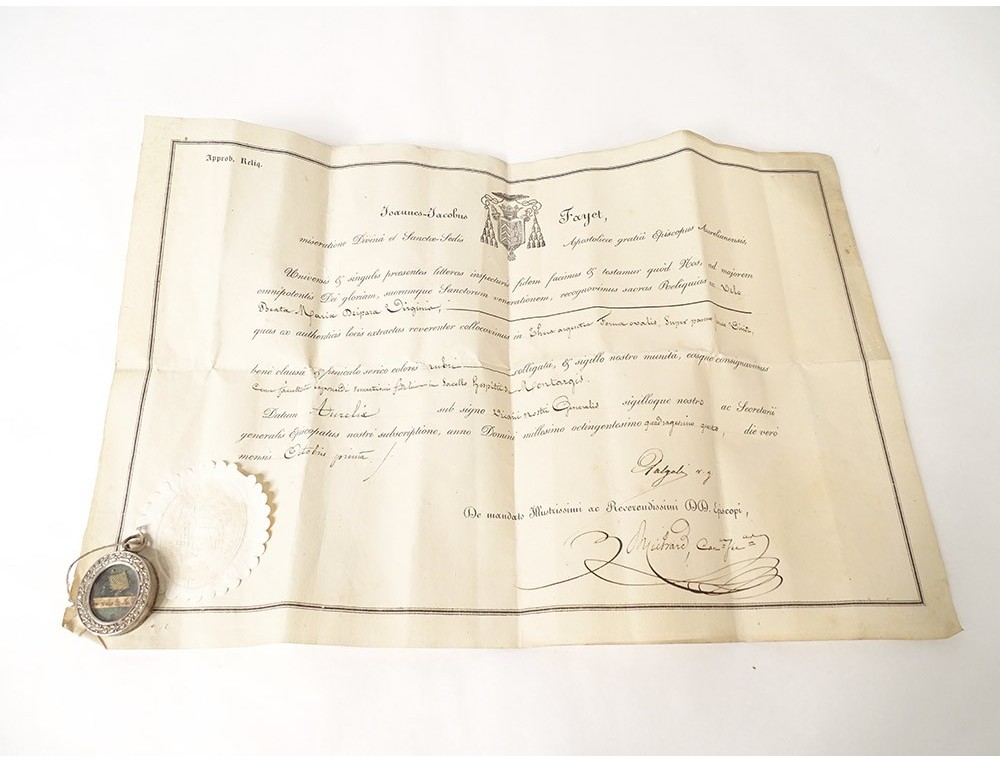 Approb. Reliq.
Joannes-Jacobus Fayet,
miseratione Divinâ et Sanctæ-Sedis Apostolicæ gratiâ Episcopus Aurelianensis,
Universis & singulis præsentes litteras inspecturis fidem facimus & testamur quòd Nos, ad majorem
omnipotentis Dei gloriam, suorumque Sanctorum venerationem, recognovimus sacras Reliquias ex Velo
Beatæ Mariæ Deiparæ Virginis,
quas ex authenticis locis extractas reverenter collocavimus in Theca argentea Forma ovalis, super
benè clausâ & funiculo serico coloris rubri colligatâ, & sigillo nostro munitâ, easque consignavimus
Cum facultate exponendi venerationi fidelium in Sacello hospitii de Montargis.
Datum Aureliæ sub signo Vicarii nostri Generalis sigilloque nostro ac Secretarii
generalis Episcopatus nostri subscriptione, anno Domini millesimo octingentesimo quadragesimo, die verò
mensis Octobris primâ
v. g
De mandato Illustrissimi ac Reverendissimi DD. Episcopi,